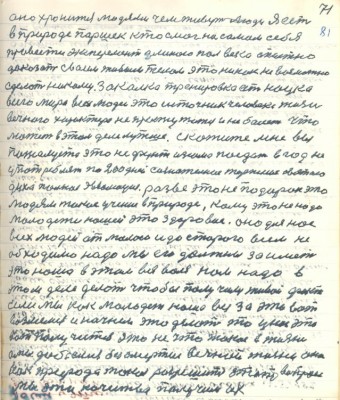 71
81
оно хронится людями чем живут люди я есть
в природе паршек кто смог на самом себя
провести эксперемент длиною пол века опытно
доказат своем живым телом это никак не возможно
сделат никому. Закалка тренировка ст наука
всего мира всех людей это источник человека жизни
вечного характера не простужатся и не болет что
может в этом деле лутше. скажите мне вы
пожалуйста это не фунт изюма поедат в год не
употреблят по 200 дней сознателное терпение святого
духа полная Революция. разве это не подарок это
людям такое учение в природе, кому это не надо
молодёжи нашей это здоровие. оно для нас
всех людей от малого и до старого всем не
обходимо надо мы его должны заиметь
это наша в этом вся воля нам надо в
этом деле делат чтобы получит живой факт
если мы как молодёж наша вся за это вот
возмемся и начнем это делат то у нас это
вот получится это не что такое в жизни
мы добемся бессмертие вечной жизни она
как природа такая разрешит этот вопрос
мы эта начнется получим их